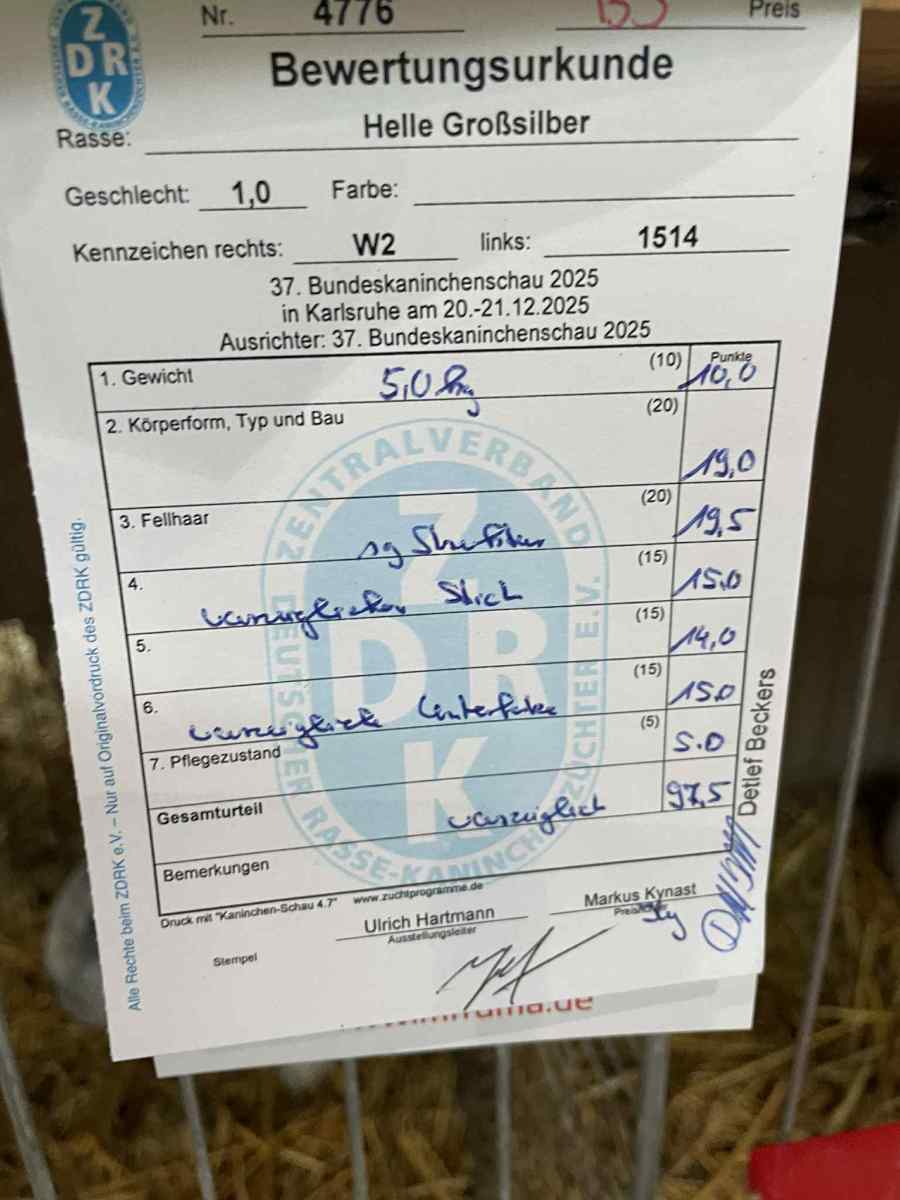 Nr. 4776 Preis
ZDRK
Bewertungsurkunde
Rasse: Helle Großsilber
Geschlecht: 1,0 Farbe:
Kennzeichen rechts: W2 links: 1514
37. Bundeskaninchenschau 2025
in Karlsruhe am 20.-21.12.2025
Ausrichter: 37. Bundeskaninchenschau 2025
Punkte
1. Gewicht 5,0 kg (10) 10,0
2. Körperform, Typ und Bau (20) 19,0
3. Fellhaar (20) 19,5
sg Struktur
4. (15) 15,0
vorzüglicher Stich
5. (15) 14,0
6. (15) 15,0
vorzügliche Unterfarbe
7. Pflegezustand (5) 5.0
Gesamturteil vorzüglich 97,5
Bemerkungen
Druck mit "Kaninchen-Schau 4.7" www.zuchtprogramme.de
Ulrich Hartmann
Ausstellungsleiter
Markus Kynast
Stempel
Detlef Beckers
Alle Rechte beim ZDRK e.V. – Nur auf Originalvordruck des ZDRK gültig.
ZENTRALVERBAND DEUTSCHER RASSE-KANINCHENZÜCHTER E.V.
ZDRK